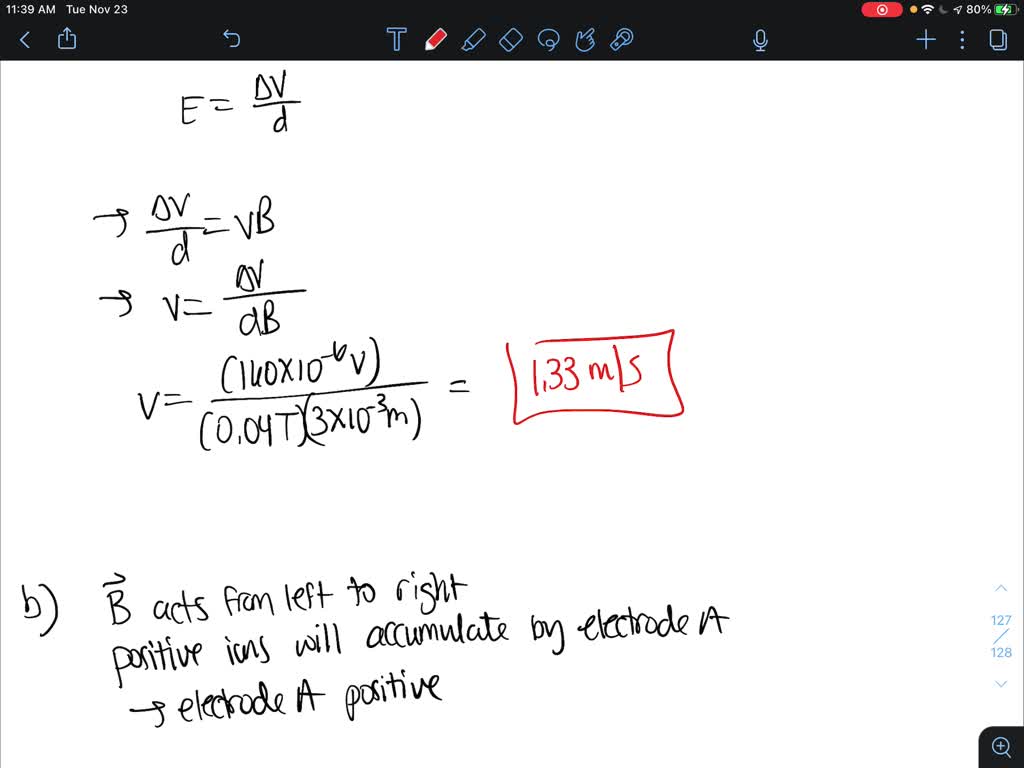 11:39 AM Tue Nov 23
80%
T
E = ΔV/d
→ ΔV/d = vB
→ v = ΔV/dB
v = (160×10⁻⁶ V)/(0.04T)(3×10⁻³ m) = 1.33 m/s
b) B⃗ acts from left to right
positive ions will accumulate by electrode A
→ electrode A positive
127
128